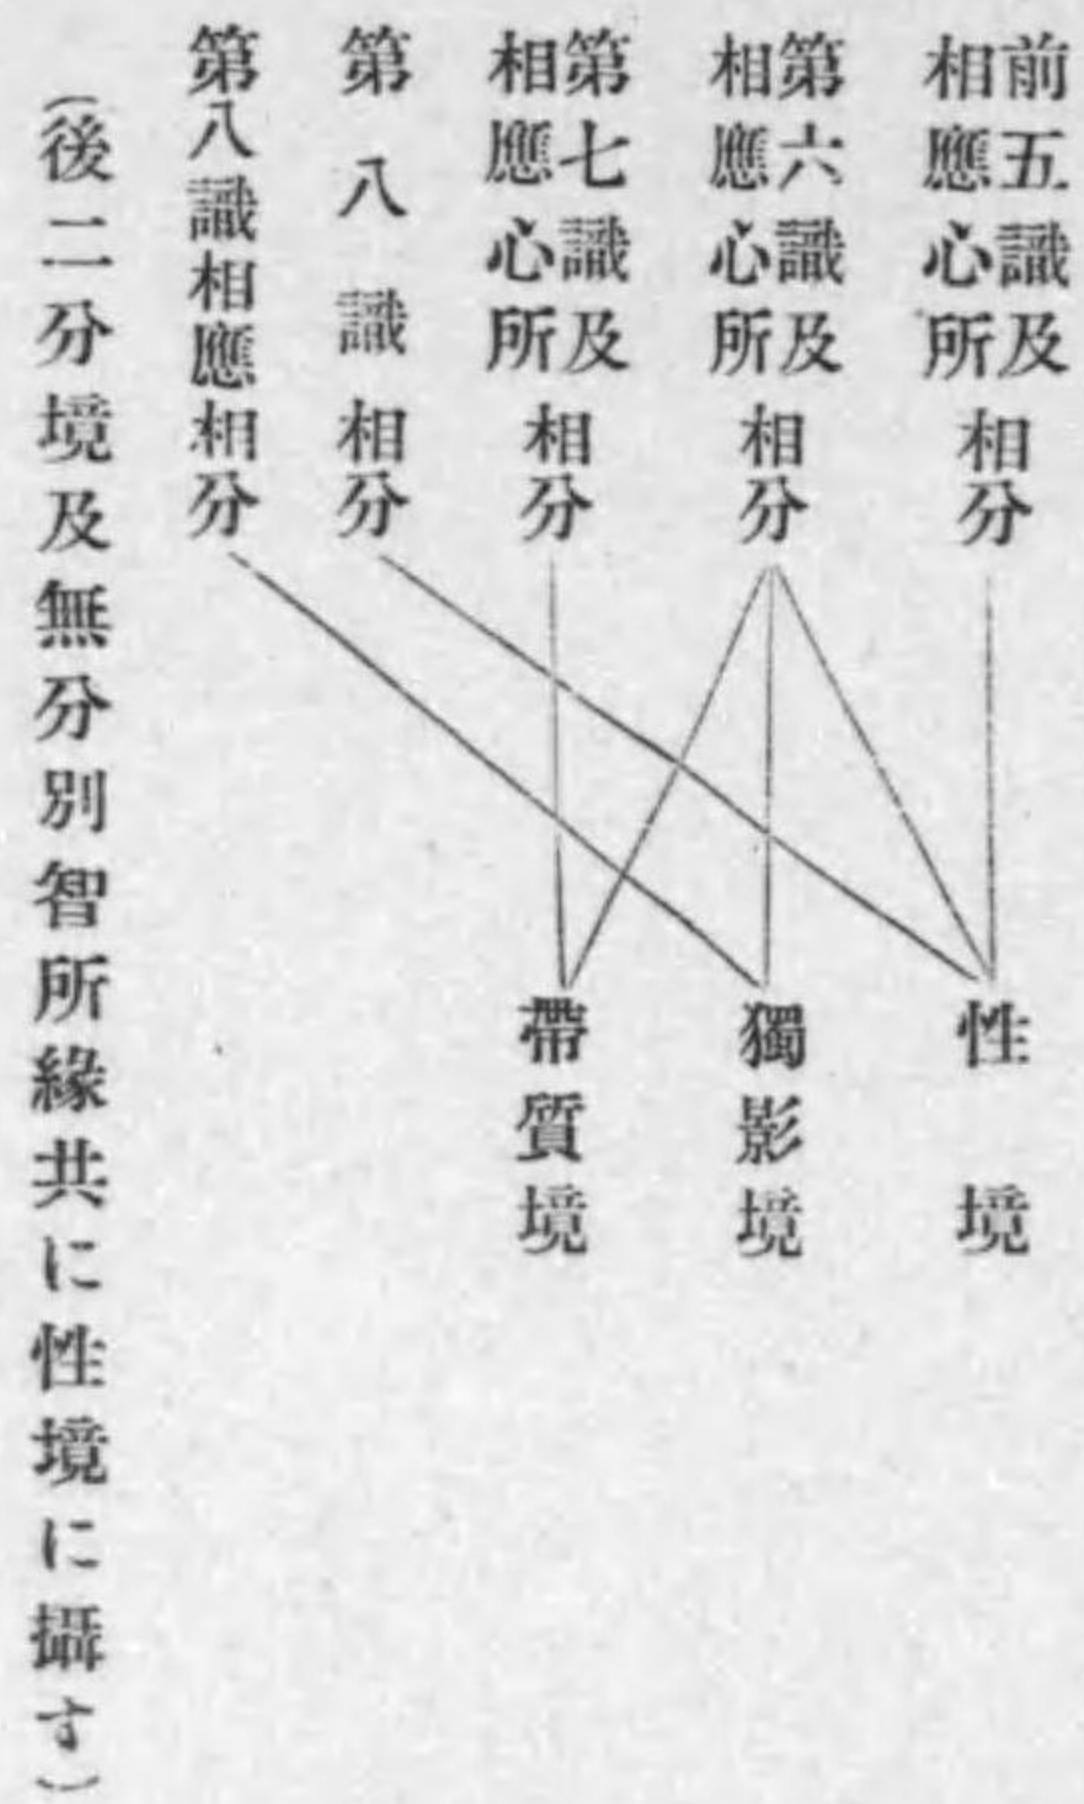 前五識及
相應心所
相分
第六識及
相應心所
相分
第七識及
相應心所
相分
第八識相分
第八識相應相分
性境
獨影境
帶質境
(後二分境及無分別智所緣共に性境に攝す)